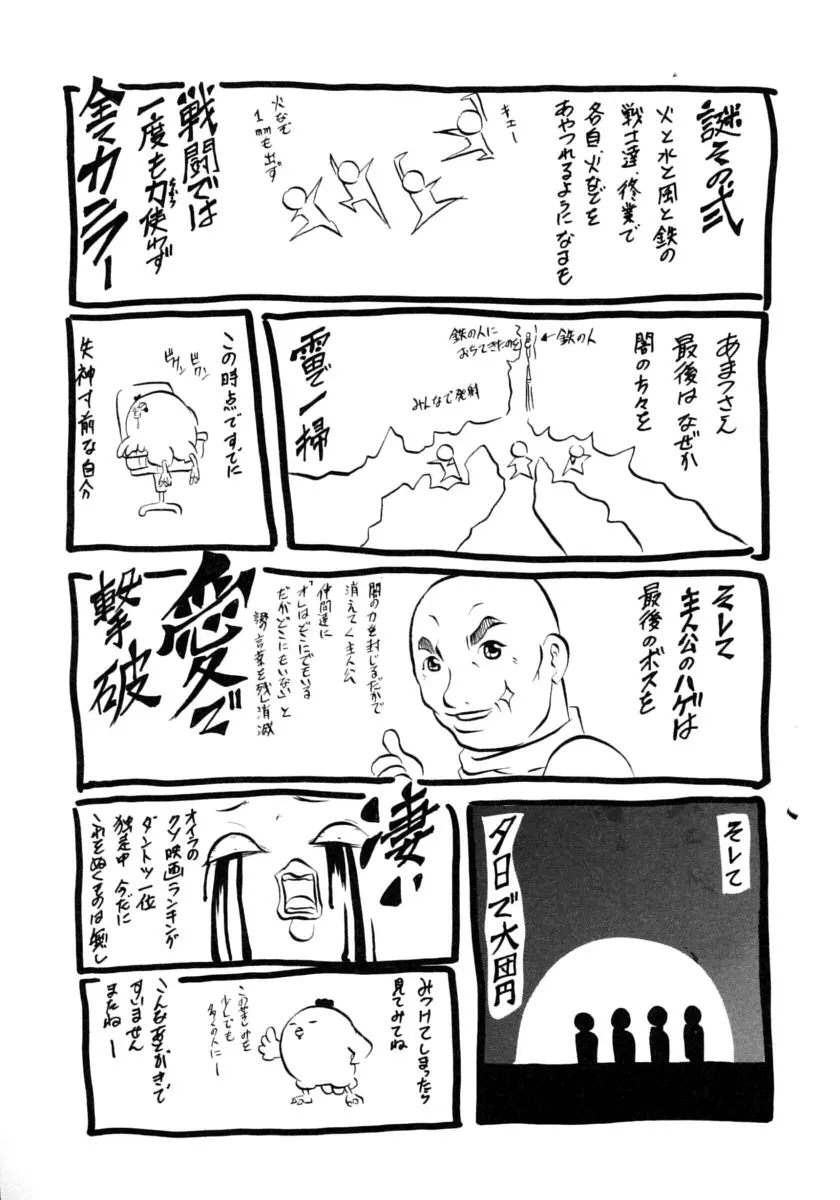 謎その弐
火と水と風と鉄の
戦士達、修業で
各自、火などを
あやつれるようになるも
キェー
火なぞ
1mmも出ず
戦闘では
一度も力使わず
全てカラテー
あまつさえ
最後はなぜか
闇の方々を
←鉄の人
鉄の人に
おちてきたのを
みんなで発射
雷で一掃
この時点ですでに
ビクン
ビクン
失神寸前な自分
そして
主人公のハゲは
最後のボスを
闇の力を封じるだかで
消えてく主人公
仲間達に
「オレはどこにでもいる
だがどこにもいない」と
謎の言葉を残し消滅
愛で
撃破
そして
夕日で大団円
凄い
オイラの
クソ映画ランキングが
ダントツ一位
独走中 今だに
これをぬくものは無し
みつけてしまったら
見てみてね
この苦しみを
少しでも
多くの人にー
こんなあとがきで
すいません
またねー